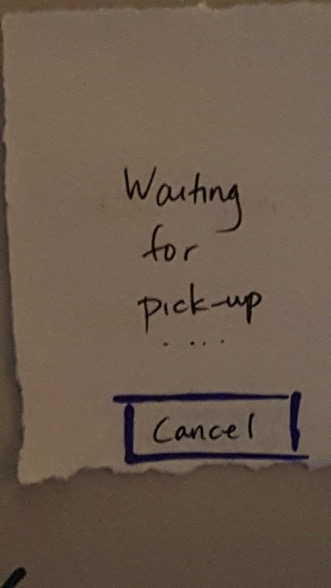 Waiting
for
pick-up
....
Cancel